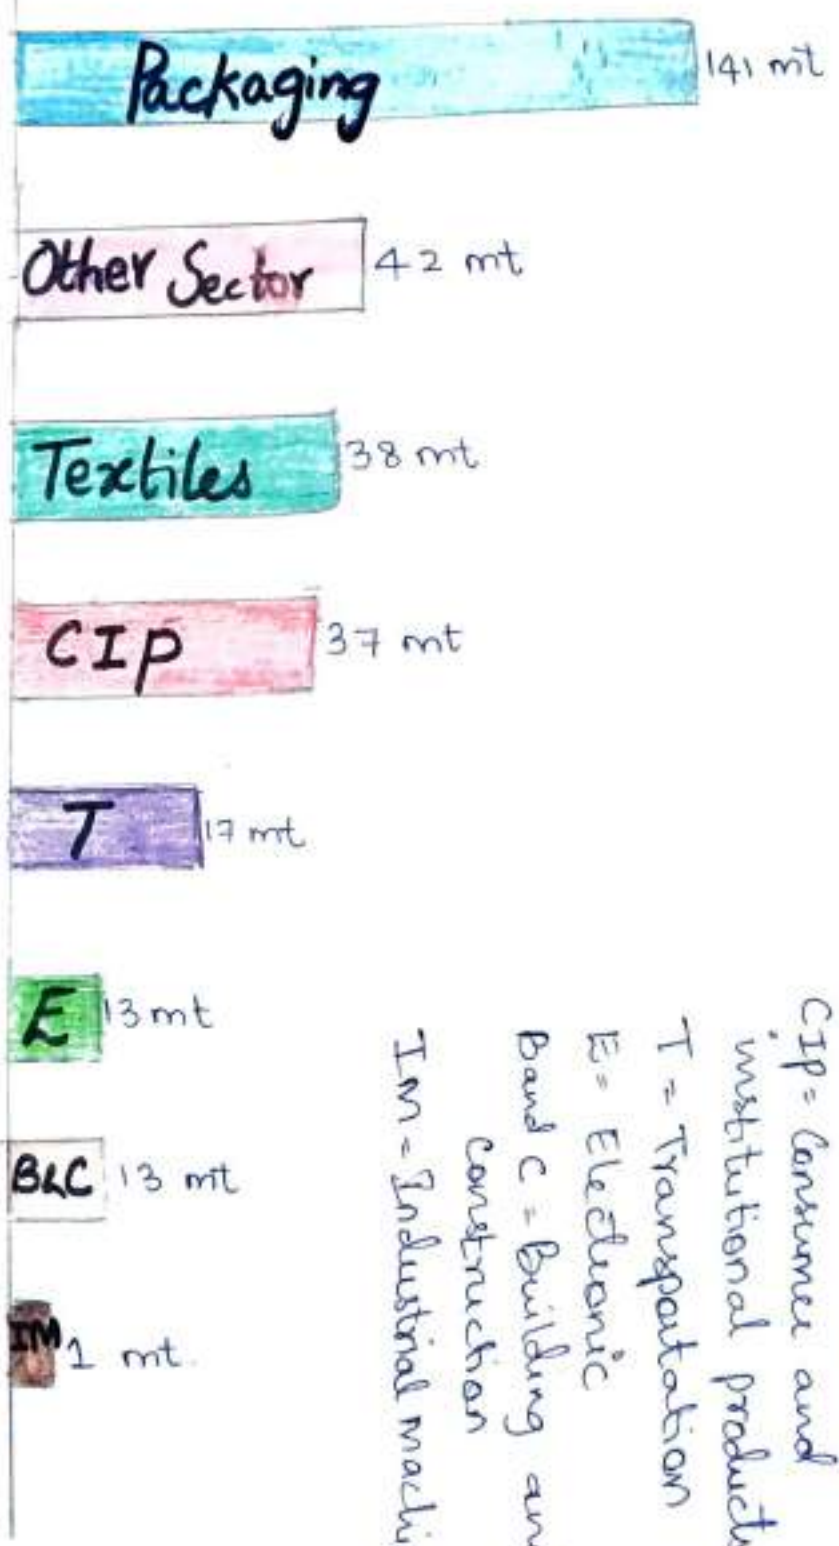 Packaging 141 mt
Other Sector 42 mt
Textiles 38 mt
CIP 37 mt
T 17 mt
E 13 mt
B&C 13 mt
IM 1 mt.
CIP = Consumer and
institutional product
T = Transportation
E = Electronic
Band C = Building an
Construction
IM = Industrial machi